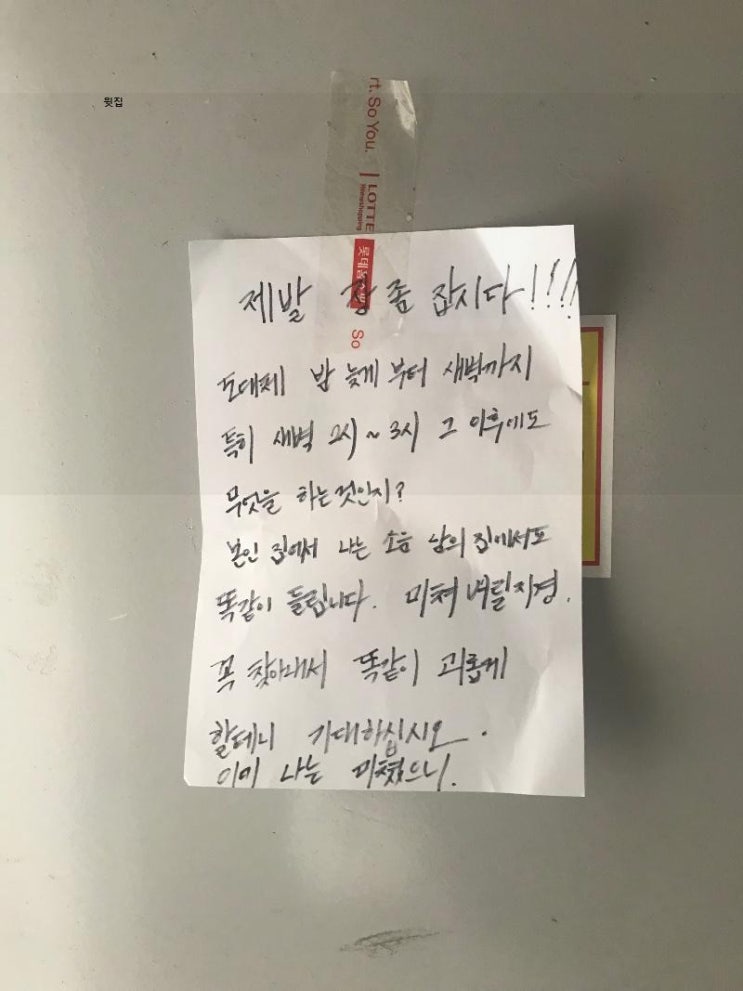 뒷집
rt. So You.
LOTTE
Homeshopping
롯데홈쇼핑
So
제발 잠 좀 잡시다!!!!
도대체 밤 늦게 부터 새벽까지
특히 새벽 2시~3시 그 이후에도
무엇을 하는것인지?
본인 집에서 나는 소음 남의 집에서도
똑같이 들립니다. 미쳐버릴지경.
꼭 찾아내서 똑같이 괴롭게
할테니 기대하십시오.
이미 나는 미쳤으니.